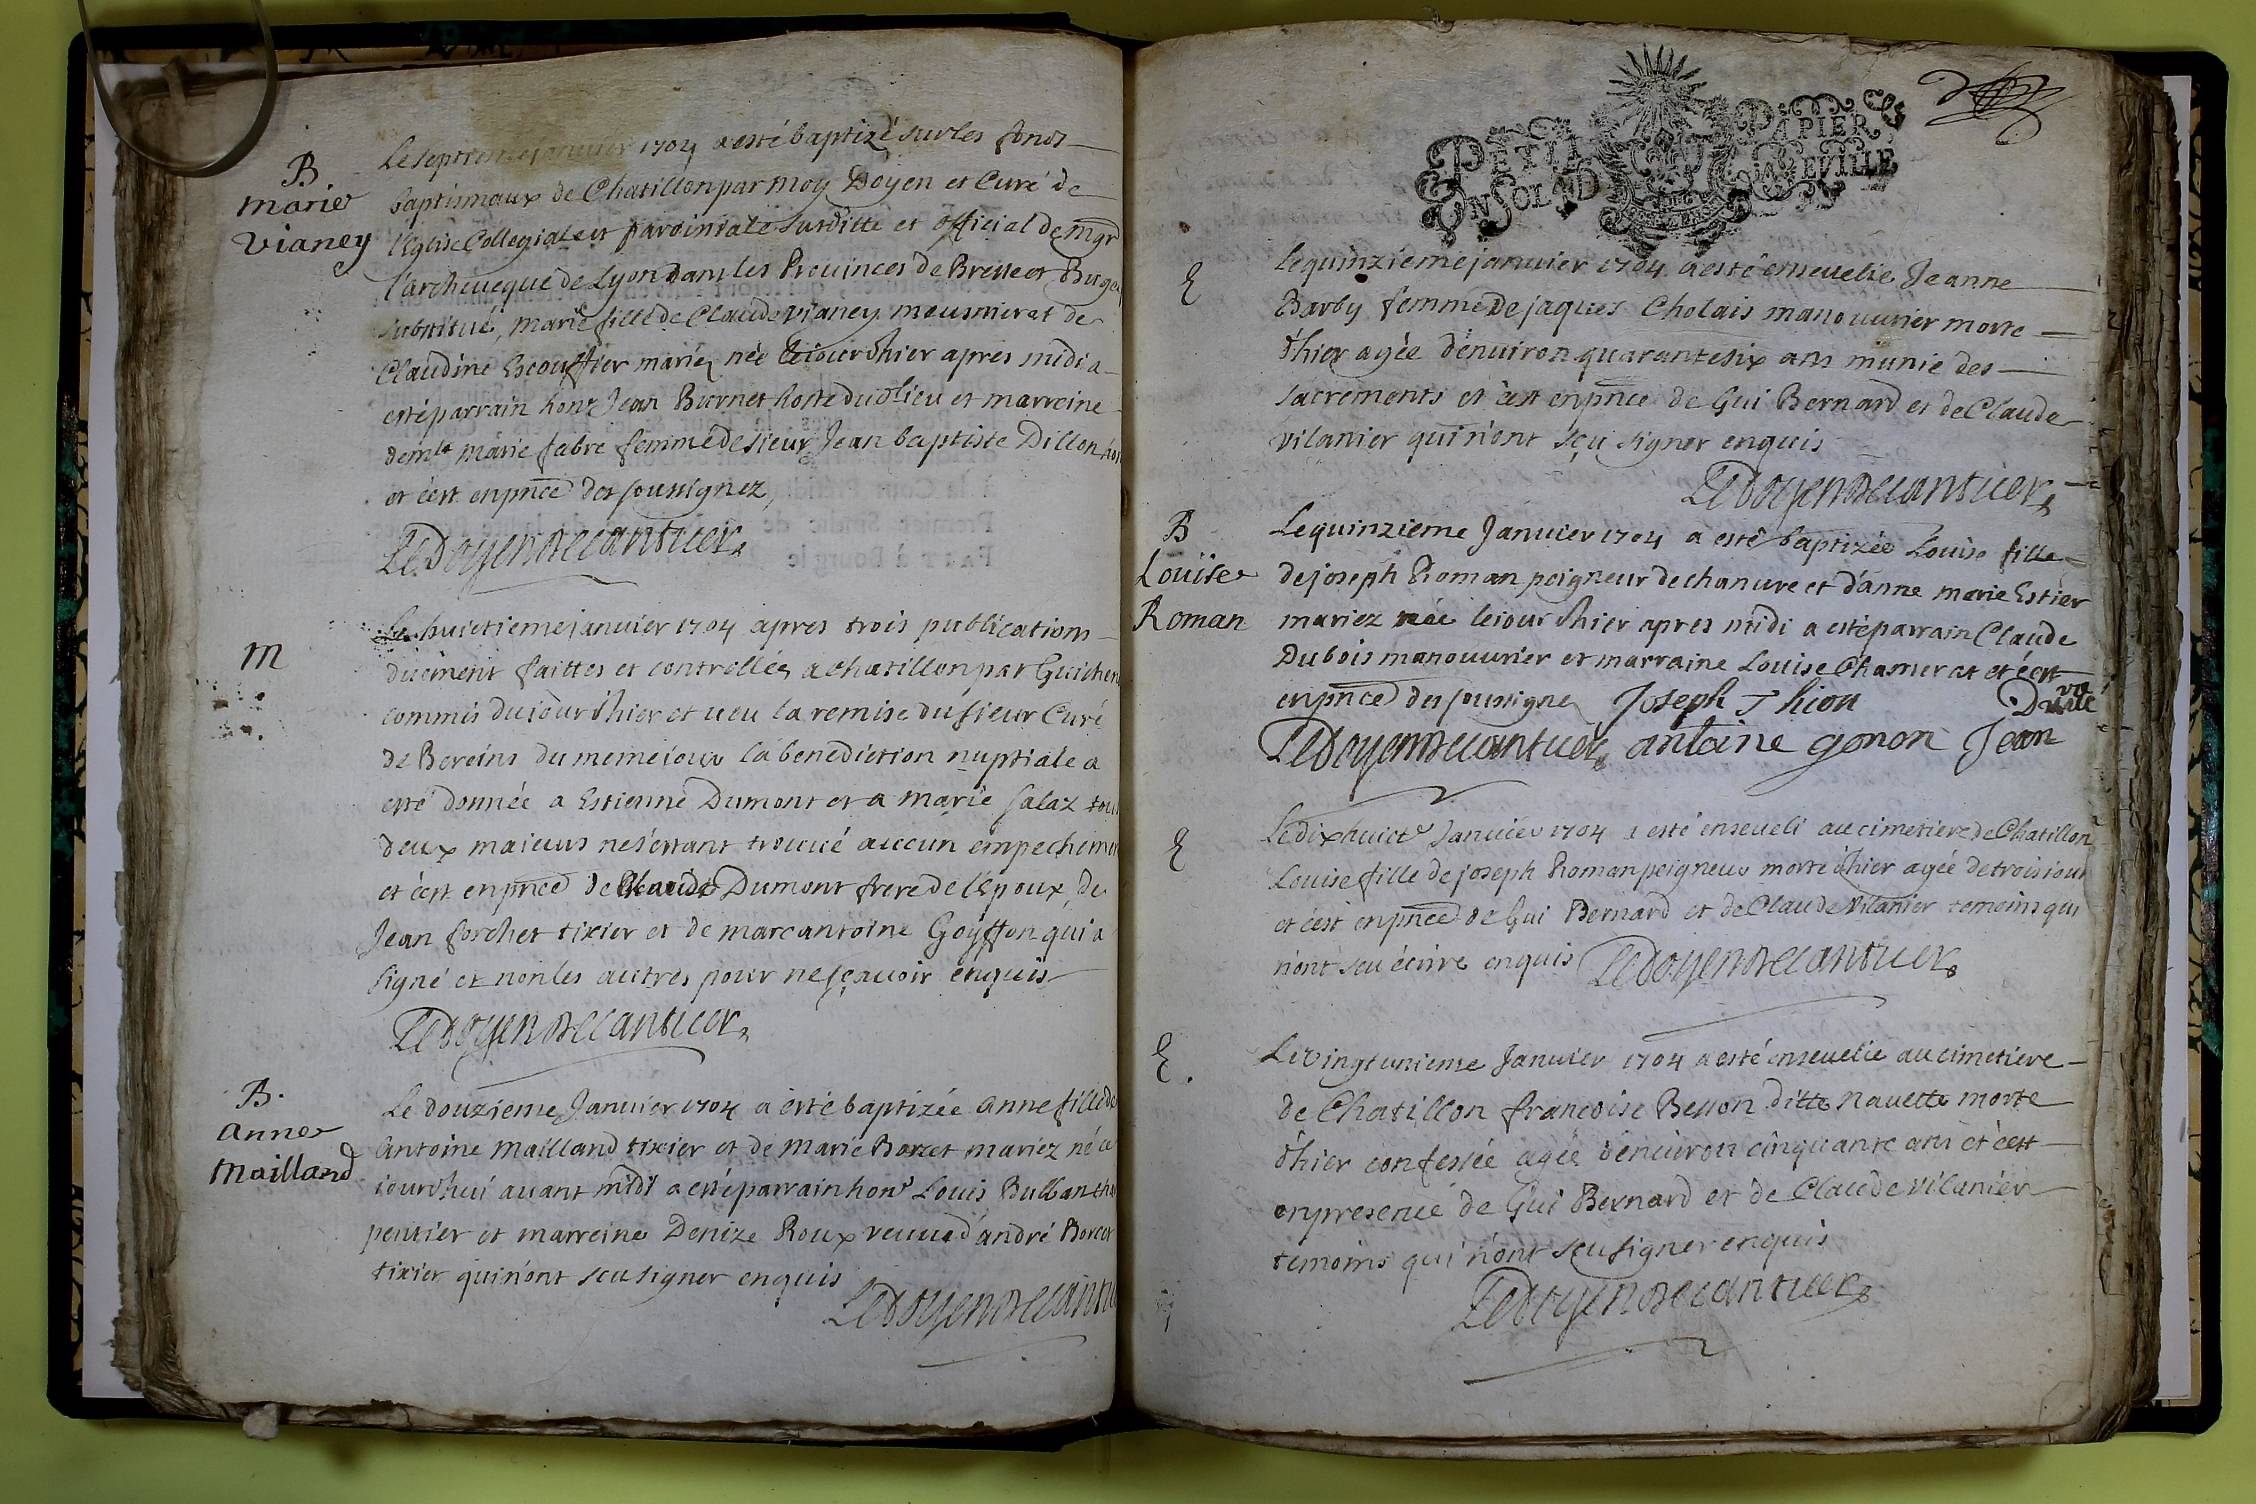 B
marie
vianey
Le septiéme janvier 1704 a esté baptizé sur les fons
baptismaux de Chatillon par moy Doyen et Curé de
l'Eglise Collegiale et paroissiale susditte et official de Mgr
l'archeveque de Lyon dans les Provinces de Bresse et Bugey
substitué, marie fille de Claude vianey meusnier et de
Claudine Escoffier mariez née le jour d'hier apres midi a
esté parrain hon. Jean Burnet hoste dud lieu et marreine
demlle marie fabre femme de sieur Jean baptiste Dillon
et c'est en pnce des soussignez,
Le Doyen Decantuer
m
Le huictieme janvier 1704 apres trois publications
duëment faittes et controllées a chatillon par Guichen
commis du jour d'hier et veu la remise du sieur Curé
de Bereins du meme jour la benediction nuptiale a
esté donnée a Estienne Dumont et a marie salaz tou
deux majeurs ne s'estant trouvé aucun empechemen
et c'est en pnce de Claude Dumont frere de l'Epoux, de
Jean forchet tixier et de marc antoine Goyffon qui a
signé et non les autres pour ne sçavoir enquis
Le Doyen Decantuer
B.
anne
Mailland
Le douzieme Janvier 1704 a esté baptizée anne fille de
Antoine Mailland tixier et de Marie Borcet mariez né ce
jourd'hui avant midi a esté parrain hon. Louis Bulban cha
pentier et marreine Denize Roux veuve d'andré Borcet
tixier qui n'ont sceu signer enquis
Le Doyen Decantu
PETIT PAPIER
UN SOL 4 D LA FEUILLE
E
Le quinzieme janvier 1704 a esté ensevelie Jeanne
Barby femme de jaques Cholais manouvrier morte
d'hier agée d'environ quarante six ans munie des
sacrements et c'est en pnce de Gui Bernard et de Claude
vilanier qui n'ont sçu signer enquis
Le Doyen Decantuer
B
Louïse
Roman
Le quinzieme Janvier 1704 a esté baptizée Louise fille
de joseph Roman peigneur de chanvre et d'anne marie Estier
mariez née le jour d'hier apres midi a esté parrain Claude
Dubois manouvrier et marraine Louise Chamerat et c'est
en pnce des soussignez Joseph Thion
Le Doyen Decantuer antoine gonon Jean
E
Le dix huicte Janvier 1704 a esté enseveli au cimetiere de Chatillon
Louise fille de joseph Roman peigneur morte d'hier agée de trois jour
et c'est en pnce de Gui Bernard et de Claude Vilanier temoins qui
n'ont sceu écrire enquis Le Doyen Decantuer
E.
Le vingt unieme Janvier 1704 a esté ensevelie au cimetiere
de Chatillon françoise Besson ditte Navette morte
d'hier confessée agée d'environ cinquante ans et c'est
en presence de Gui Bernard et de Claude vilanier
temoins qui n'ont sceu signer enquis
Le Doyen Decantuer